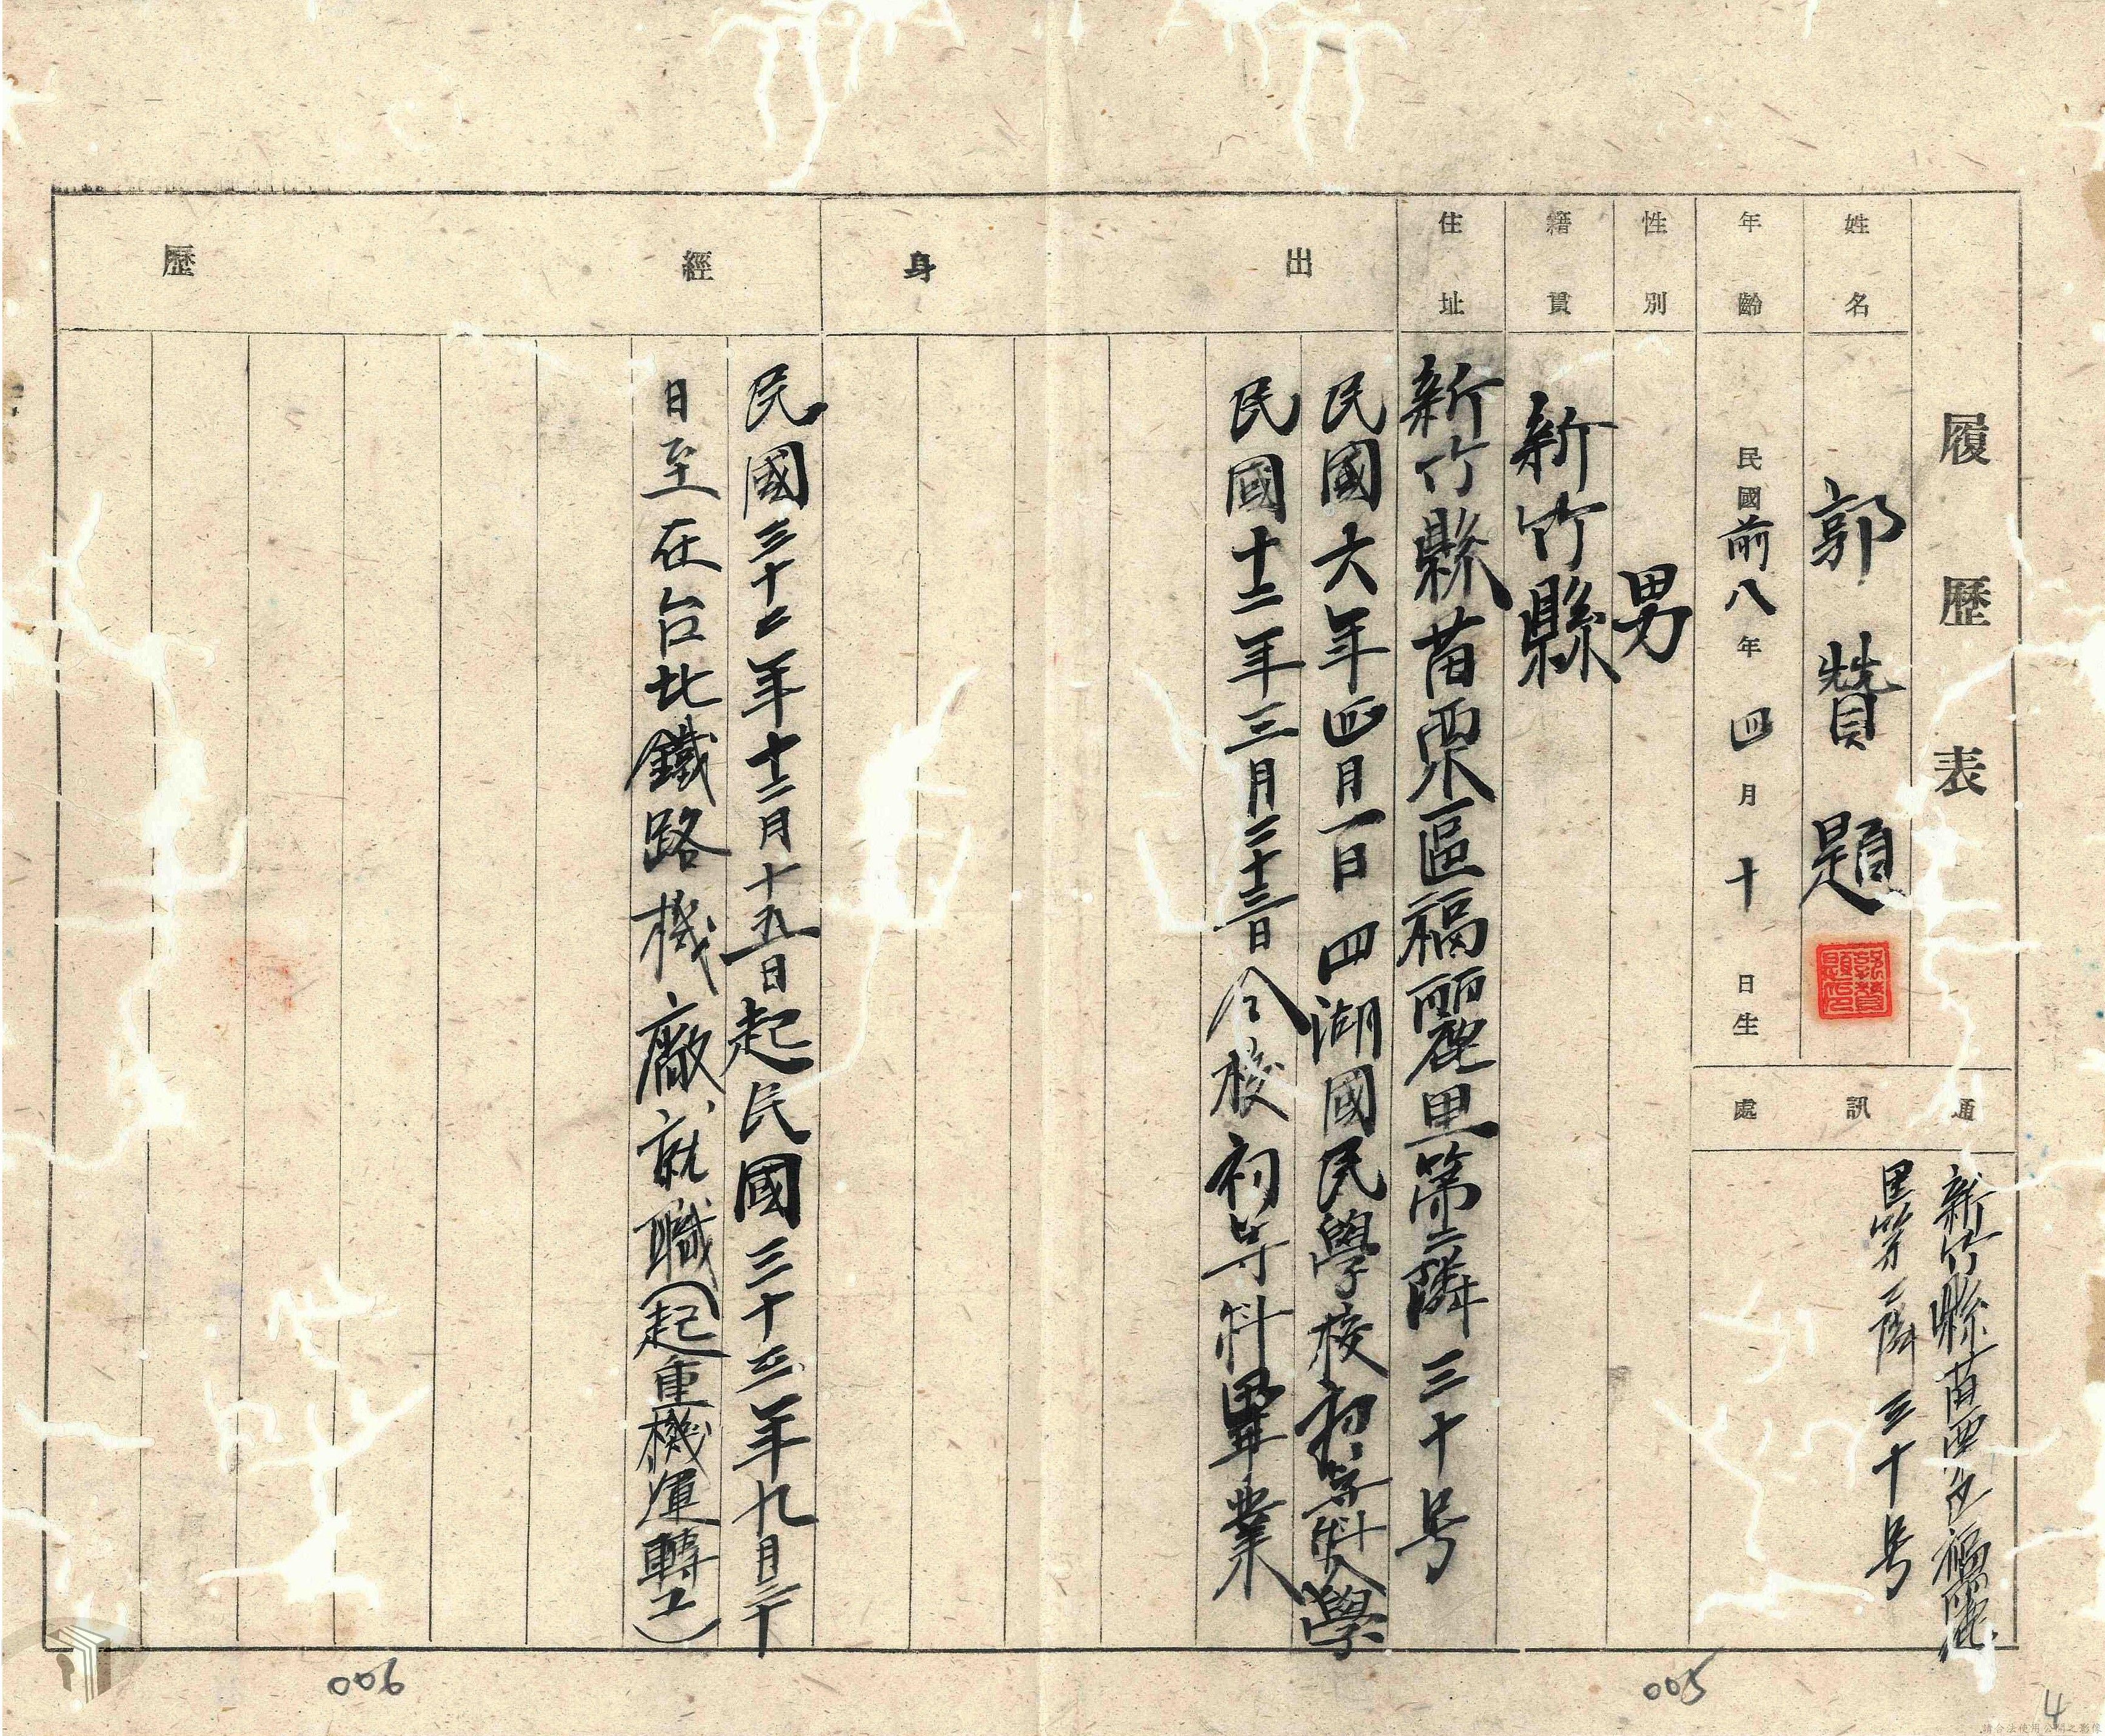 履歷表
姓名
郭贊題
年齡
民國前八年四月十日生
通訊處
新竹縣苗栗區福麗
里第二鄰三十号
性別
男
籍貫
新竹縣
住址
新竹縣苗栗區福麗里第二鄰三十号
出身
民國六年四月一日四湖國民學校初等科入學
民國十二年三月二十三日仝校初等科畢業
經歷
民國三十二年十二月十五日起民國三十三年九月二十
日至在台北鐵路機廠就職(起重機運轉工)
005
006
4